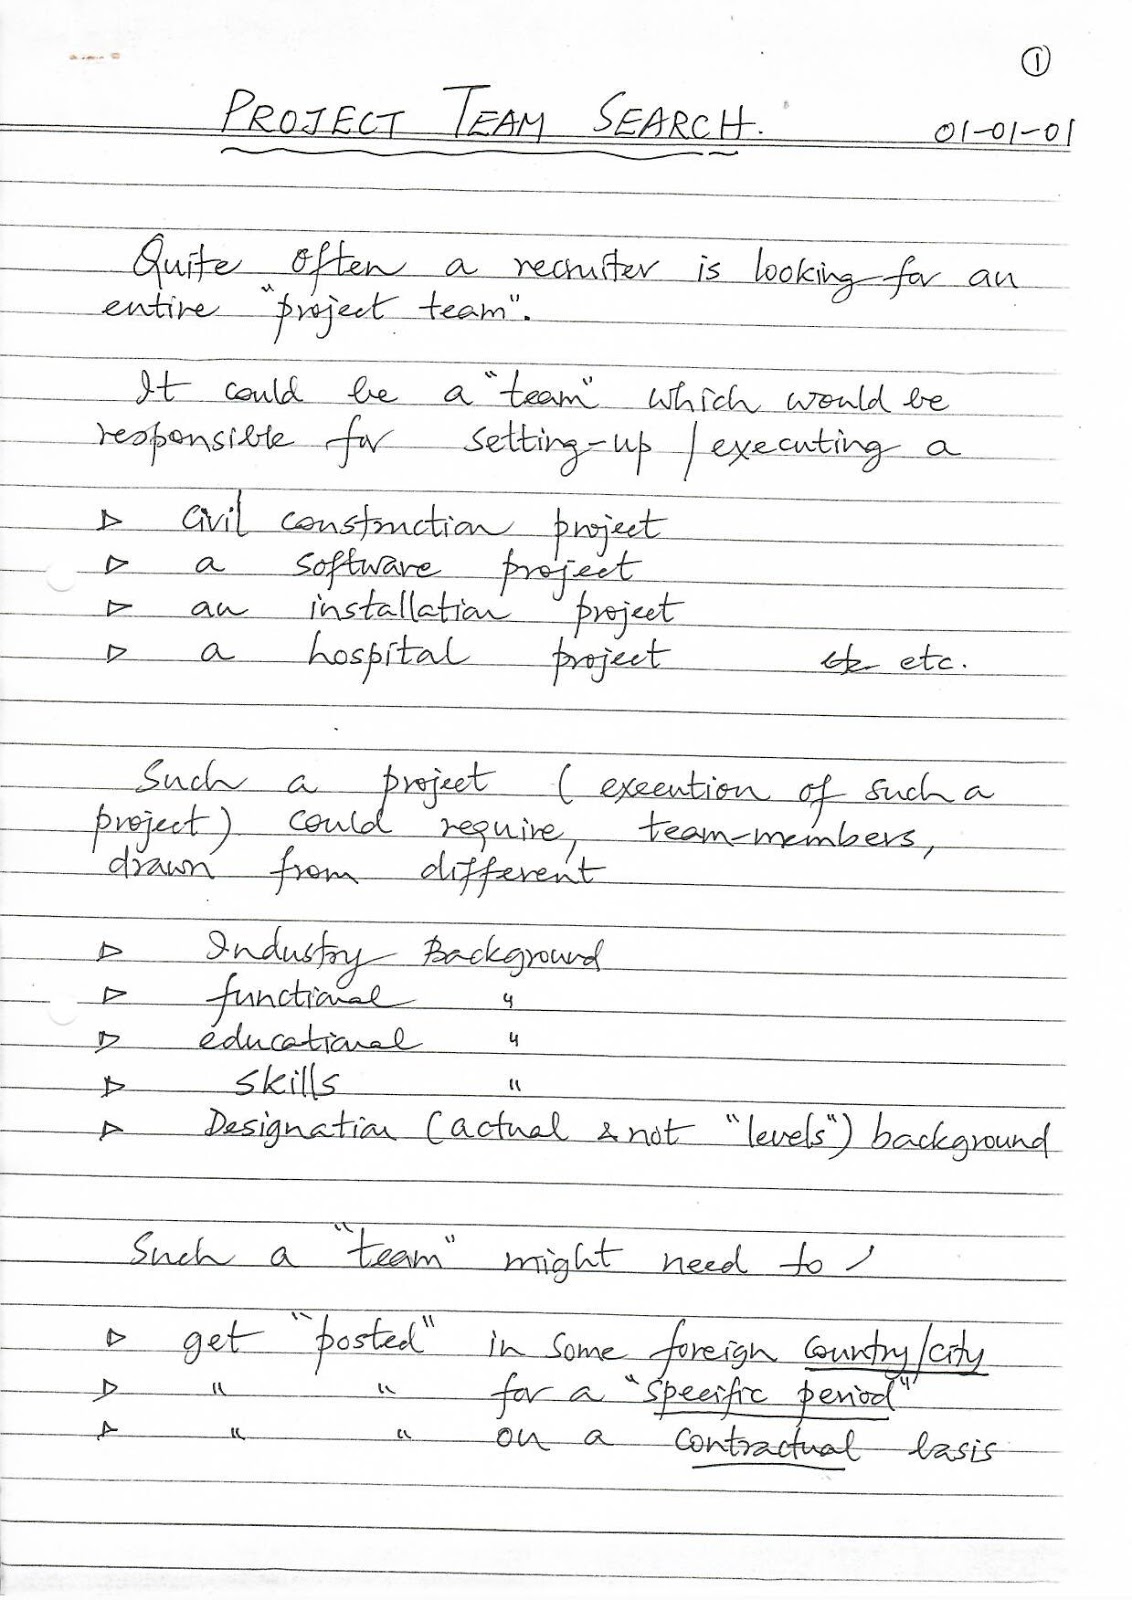 ①
PROJECT TEAM SEARCH.
01-01-01
Quite often a recruiter is looking for an
entire "project team".
It could be a "team" which would be
responsible for setting-up / executing a
▷ Civil construction project
▷ a software project
▷ an installation project
▷ a hospital project etc.
Such a project ( execution of such a
project) could require, team-members,
drawn from different
▷ Industry Background
▷ functional "
▷ educational "
▷ skills "
▷ Designation (actual & not "levels") background
Such a "team" might need to /
▷ get "posted" in some foreign country/city
▷ " " for a "specific period"
▷ " " on a contractual basis